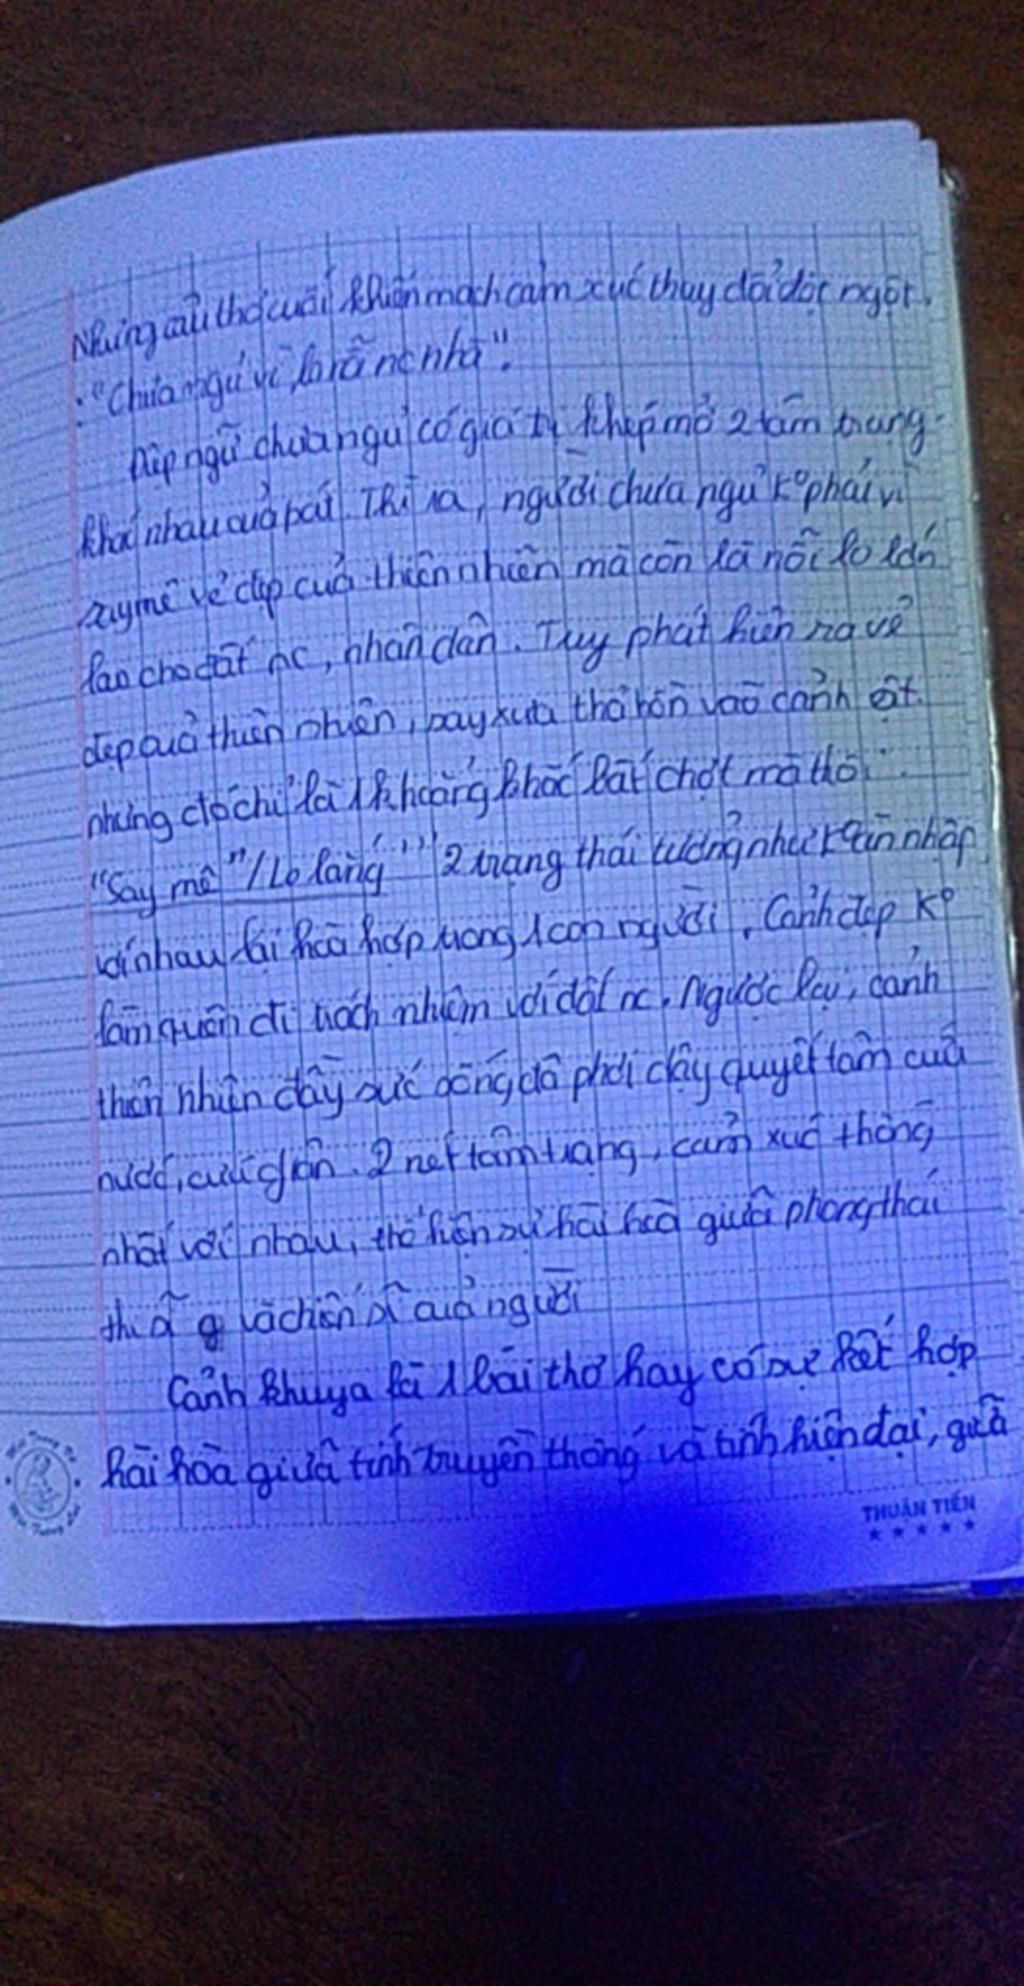 Nhưng câu thơ cuối khiến mạch cảm xúc thay đổi đột ngột.
"Chưa ngủ vì lo nỗi nc nhà".
Điệp ngữ chưa ngủ có giá trị khép mở 2 tâm trạng
khác nhau của bác. Thì ra, người chưa ngủ k° phải vì
say mê vẻ đẹp của thiên nhiên mà còn là nỗi lo lớn
lao cho đất nc, nhân dân. Tuy phát hiện ra vẻ
đẹp của thiên nhiên, say xưa thả hồn vào cảnh vật.
nhưng đó chỉ là 1 khoảng khắc bất chợt mà thôi.
"Say mê" / Lo lắng" 2 trạng thái tưởng như nhập
với nhau lại hoà hợp trong 1 con người. Cảnh đẹp k°
làm quên đi trách nhiệm với đất nc. Ngược lại, cảnh
thiên nhiên đầy sức sống đã phơi dậy quyết tâm cứu
nước, cứu dân. 2 nét tâm trạng, cảm xúc thống
nhất với nhau, thể hiện sự hài hoà giữa phong thái
thi sĩ và chiến sĩ của người
Cảnh khuya là 1 bài thơ hay có sự kết hợp
hài hòa giữa tính truyền thống và tính hiện đại, giữa
THUẬN TIẾN